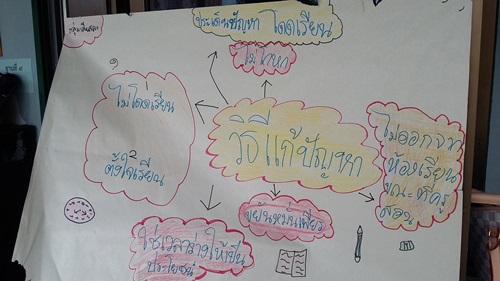 ประเด็นปัญหา โดดเรียน
ไม่โกหก
๑
ไม่โดดเรียน
๒
ตั้งใจเรียน
วิธีแก้ปัญหา
ไม่ออกจาก
ห้องเรียน
ขณะที่ครู
สอน
ขยันหมั่นเพียร
ใช้เวลาว่างให้เป็น
ประโยชน์